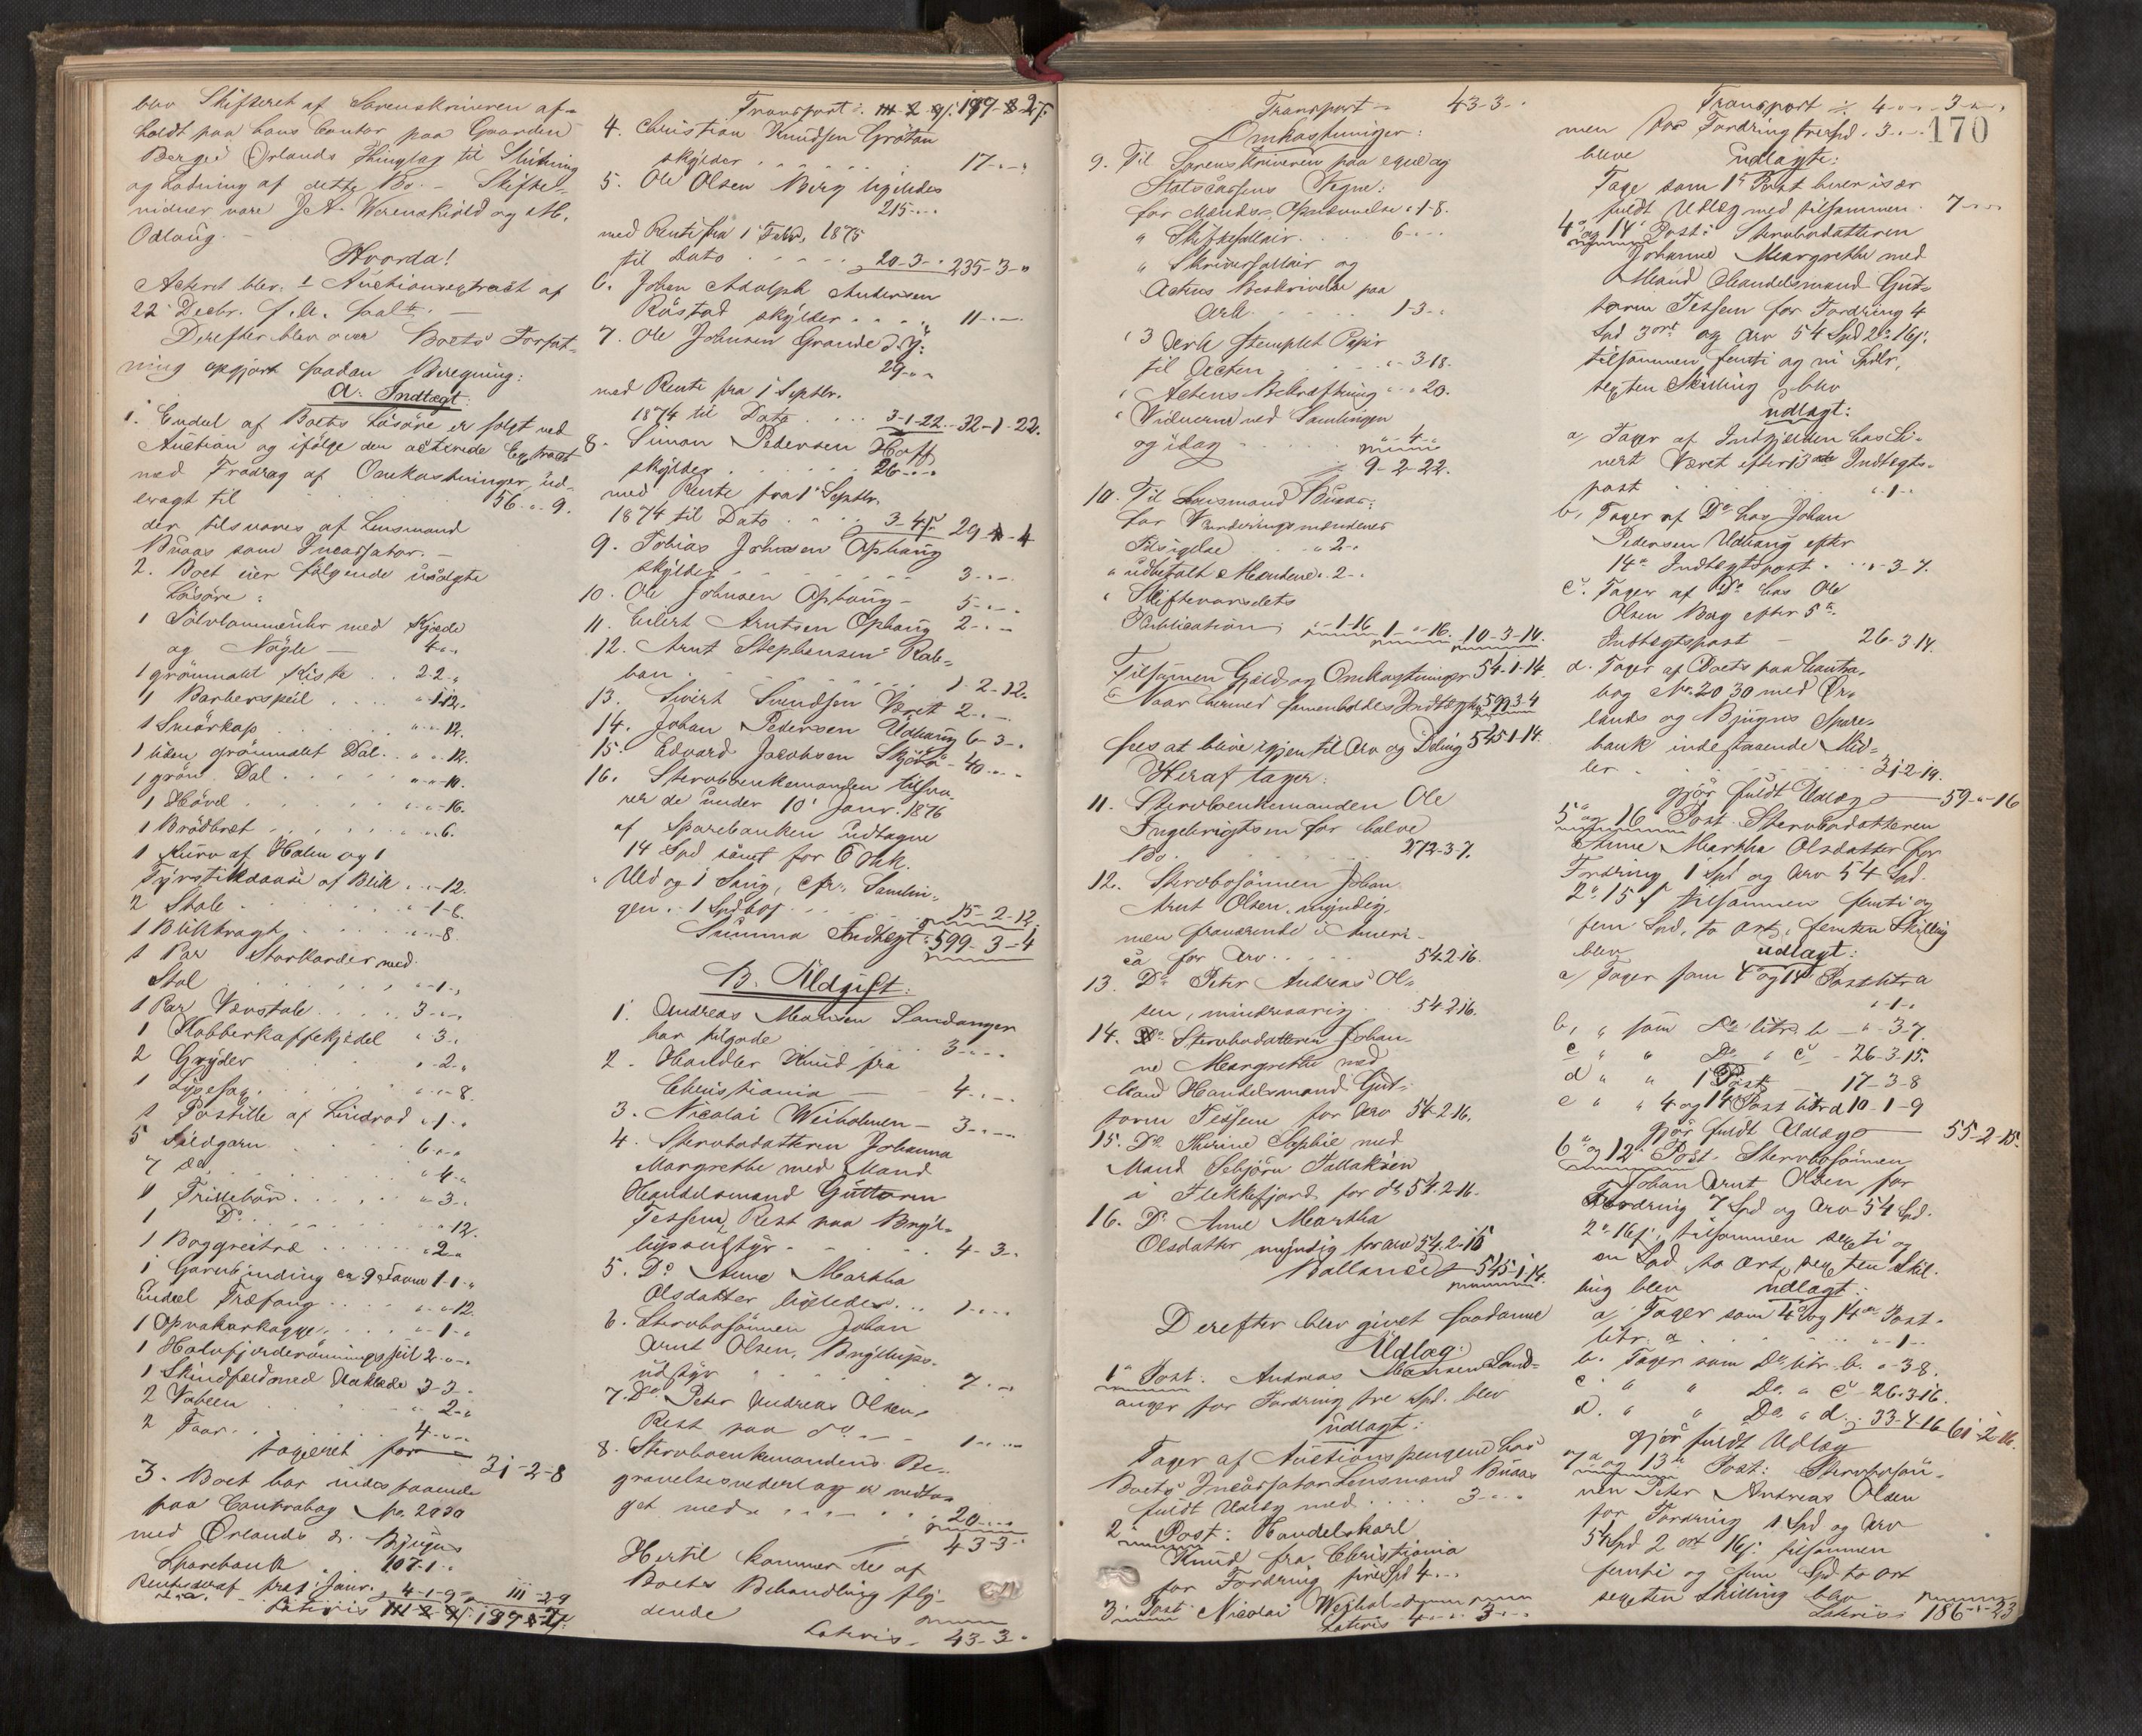 blev Skifteret af Sorenskriveren af-
holdt paa hans Contor paa Gaarden
Berg i Ørlands Thinglag til Slutning
og Lodning af dette Bo. - Skifte-
vidner vare J. A. Werenskiold og M.
Odlaug. -
Hvorda!
Acteret blev 1 Auctionsextract af
22 Decbr. f. A. saal.
Derefter blev over Boets Forfat-
ning opgjort saadan Beregning:
A. Indtægt:
1. Endel af Boets Løsøre er solgt ved
Auction og ifølge den acterede Extract
med Fradrag af Omkostninger, ud-
bragt til 56 " 9.
der tilsvares af Lensmand
Buaas som Incassator. -
2. Boet eier følgende usolgte
Løsøre:
1 Sølvlommeuhr med Kjæde
og Nøgle - 4 " "
1 grønmalet Kiste . . 2-2 "
1 Barberspeil . . . . " 1-12.
1 Smørkop . . . " " 12.
1 liden grønmalet Dal . . " " 12.
1 grøn Dal . . . . " " 10.
1 Høvel . . . . " " 16.
1 Brødbræt . . . . " " 6.
1 Kurv af Halm og 1
Fyrstikdaase af Blik . " " 12.
2 Stole . . . . " 1-6.
1 Bliktragt . . . . " " 8
1 Par Storkarder med
Stol . . . . " 1 "
1 Par Vævstole . . . . 3 " "
1 Kobberkaffekjedel " 3 "
2 Gryder " 2 "
1 Lysesax . . . . " " 8
1 Postille af Lindrod " 1 "
5 Sildgarn 6 " "
7 Do " 4 "
1 Trillebør . . . . " 3 "
1 Do . . . . " " 12.
1 Baggreitræ . . . . " 2 "
1 Garnbinding ca 9 Favne 1-1 "
Endeel Træfang . . . . " " 12.
1 Opvaskarkagge . . . . " 1 "
1 Halvfjerderømningsseil 2 " "
1 Skindfeld med Aaklæde 3-3 "
2 Vabeen " 2 "
2 Faar . . 4 " "
taxeret for 31-2-8
3. Boet har indestaaende
paa Contrabog No. 2030
med Ørlands & Bjugns
Sparebank 107-1 "
Renter deraf fra 1 Janr. 4-1-9 111-2-9
Lateris 199-2-2
Transport: 199-2-2
4. Christian Knudsen Grøtan
skylder . . . . 17 " "
5. Ole Olsen Berg ligeledes
215 " "
med Rente fra 1 Febr. 1875
til Dato . . . . 20-3 " 235-3 "
6. Johan Adolph Andersen
Røstad skylder . . . . 11 " "
7. Ole Johnsen Grande d. y.
29 " "
med Rente fra 1 Septbr.
1874 til Dato . . . 3-1-22 32-1-22.
8. Simon Pedersen Hoff
skylder . . . . 26 " "
med Rente fra 1 Septbr.
1874 til Dato . . . 3-4 29-4
9. Tobias Johnsen Ophaug
skylder . . . . 3 " "
10. Ole Johnsen Ophaug - 5 " "
11. Eilert Arntsen Ophaug 2 " "
12. Arnt Stephensen Rab-
ben . . . . 1-2-12.
13. Sivert Svendsen Været 2 " "
14. Johan Pedersen Udhaug 6-3 "
15. Edvard Jacobsen 40 " "
16. Stervboenkemanden tilsva-
rer de under 10 Janr. 1876
af Sparebanken udtagne
14 Spd samt for 6 Mk.
Uld og 1 Seng, cfr. Samlin-
gen - 1 Spd 15-2-12
Summa Indtægt 599-3-4
B. Udgift:
1. Andreas Monsen Sandanger
har tilgode 3 " "
2. Handler Knud fra
Christiania - 4 " "
3. Nicolai Weiholmen - 3 " "
4. Stervbodatteren Johanna
Margrethe med Mand
Handelsmand Guttorm
Tessem, Rest paa Bryl-
lupsudstyr . . . . 4-3 "
5. Do Anne Martha
Olsdatter ligeledes . . 1 " "
6. Stervbosønnen Johan
Arnt Olsen, Bryllups-
udstyr 7 " "
7. Do Peter Andreas Olsen,
Rest paa do - - 1 " "
8. Stervboenkemandens Be-
gravelsesvederlag er vedta-
get med . . . . 20 " "
43-3 "
Hertil kommer de af
Boets Behandling fly-
dende
Lateris - 43-3 "
Transport - 43-3 "
Omkostninger:
9. Til Sorenskriveren paa egne og
Statscassens Vegne:
for Mænds Opnævnelse " 1-8.
" Skiftesallair . . . 6 " "
" Skriversallair og
Actens Beskrivelse paa
Ark . . . . 1-3 "
" 3 Ark stemplet Papir
til Acten . . . . " 3-18.
" Actens Bekræftning " " 20.
" Vidnerne ved Samlingen
og idag . . . . " 4 "
9-2-22.
10. Til Lensmand Buaas:
for Vurderingsmændenes
Tilsigelse " 2 "
" udbetalt Mændene " 2 "
" Skiftevarsdets
Publication " 1-16 1 " 16. 10-3-14.
Tilsammen Gjæld og Omkostninger 54-1-14.
Naar hermed sammenholdes Indtægten 599-3-4
sees at blive igjen til Arv og Deling 545-1-14.
Heraf tager:
11. Stervboenkemanden Ole
Ingebrigtsen for halve
Bo . . . . 272-3-7.
12. Stervbosønnen Johan
Arnt Olsen, myndig,
men fraværende i Ameri-
ca for Arv . . . . 54-2-16.
13. Do Peter Andreas Ol-
sen, mindreaarig . . 54-2-16.
14. Stervbodatteren Johan-
ne Margrethe med
Mand Handelsmand Gut-
torm Tessem for Arv 54-2-16.
15. Do Thrine Sophie med
Mand Sebjørn Tallaksen
i Flekkefjord for do 54-2-16.
16. Do Anne Martha
Olsdatter myndig for Arv 54-2-15
Ballance 545-1-14.
Derefter blev givet saadanne
Udlæg:
1ste Post: Andreas Monsen Sand-
anger for Fordring tre Spd. blev
udlagt:
Tager af Auctionspengene hos
Boets Incassator Lensmand Buaas
fuldt Udlæg med . . . . 3 " "
2den Post: Handelskarl
Knud fra Christiania
for Fordring fire Spd 4 " "
3die Post Nicolai
Lateris 4 " " 3 " "
Transport 4 " " 3 " "
170
men for Fordring tre Spd. 3 " "
bleve udlagte:
Tage som 1ste Post hver især
fuldt Udlæg med tilsammen 7 " "
4de og 14de Post: Stervbodatteren
Johanne Margrethe med
Mand Handelsmand Gut-
torm Tessem for Fordring 4
Spd 3 ort og Arv 54 Spd 2 " 16 s.
tilsammen femti og ni Spdlr,
sexten Skilling blev
udlagt:
a, Tager af Indgjælden hos Si-
vert Været efter 13de Indtægts-
post . . . . " 1 "
b, Tager af Do hos Johan
Pedersen Udhaug efter
14de Indtægtspost . . " 3-7.
c. Tager af Do hos Ole
Olsen Berg efter 5te
Indtægtspost - 26-3-14.
d. Tager af Boets paa Contra-
bog No. 2030 med Ør-
lands og Bjugns Spare-
bank indestaaende Mid-
ler . . . . 31-2-19.
gjør fuldt Udlæg - 59 " 16
5te og 16de Post. Stervbodatteren
Anne Martha Olsdatter for
Fordring 1 Spd og Arv 54 Spd.
2 " 15 s tilsammen femti og
fem Spd, to ort, femten Skilling
blev udlagt:
a, Tager som 4de og 14de Post litr a
" 1 "
b, " som Do litr. b - " 3-7.
c " " Do " c - 26-3-15.
d " " 1 Post - 17-3-8
e " " 4 og 14 Post litr d 10-1-9
gjør fuldt Udlæg - 55-2-15.
6te og 12te Post. Stervbosønnen
Johan Arnt Olsen for
Fordring 7 Spd og Arv 54 Spd.
2 " 16 s, tilsammen sexti og
en Spd, to ort, sexten Skil-
ling blev udlagt:
a, Tager som 4de og 14de Post
litr. a . . . . " 1 "
b. Tager som Do litr. b. " 3-8.
c. " " Do " c - 26-3-16.
d. " " Do " d. 33-4-16 61-2-16.
gjør fuldt Udlæg
7de og 13de Post: Stervbosøn-
nen Peter Andreas Olsen
for Fordring 1 Spd og Arv
54 Spd 2 ort 16 s. tilsammen
femti og fem Spd to ort
sexten Skilling blev
Lateris 186-1-23